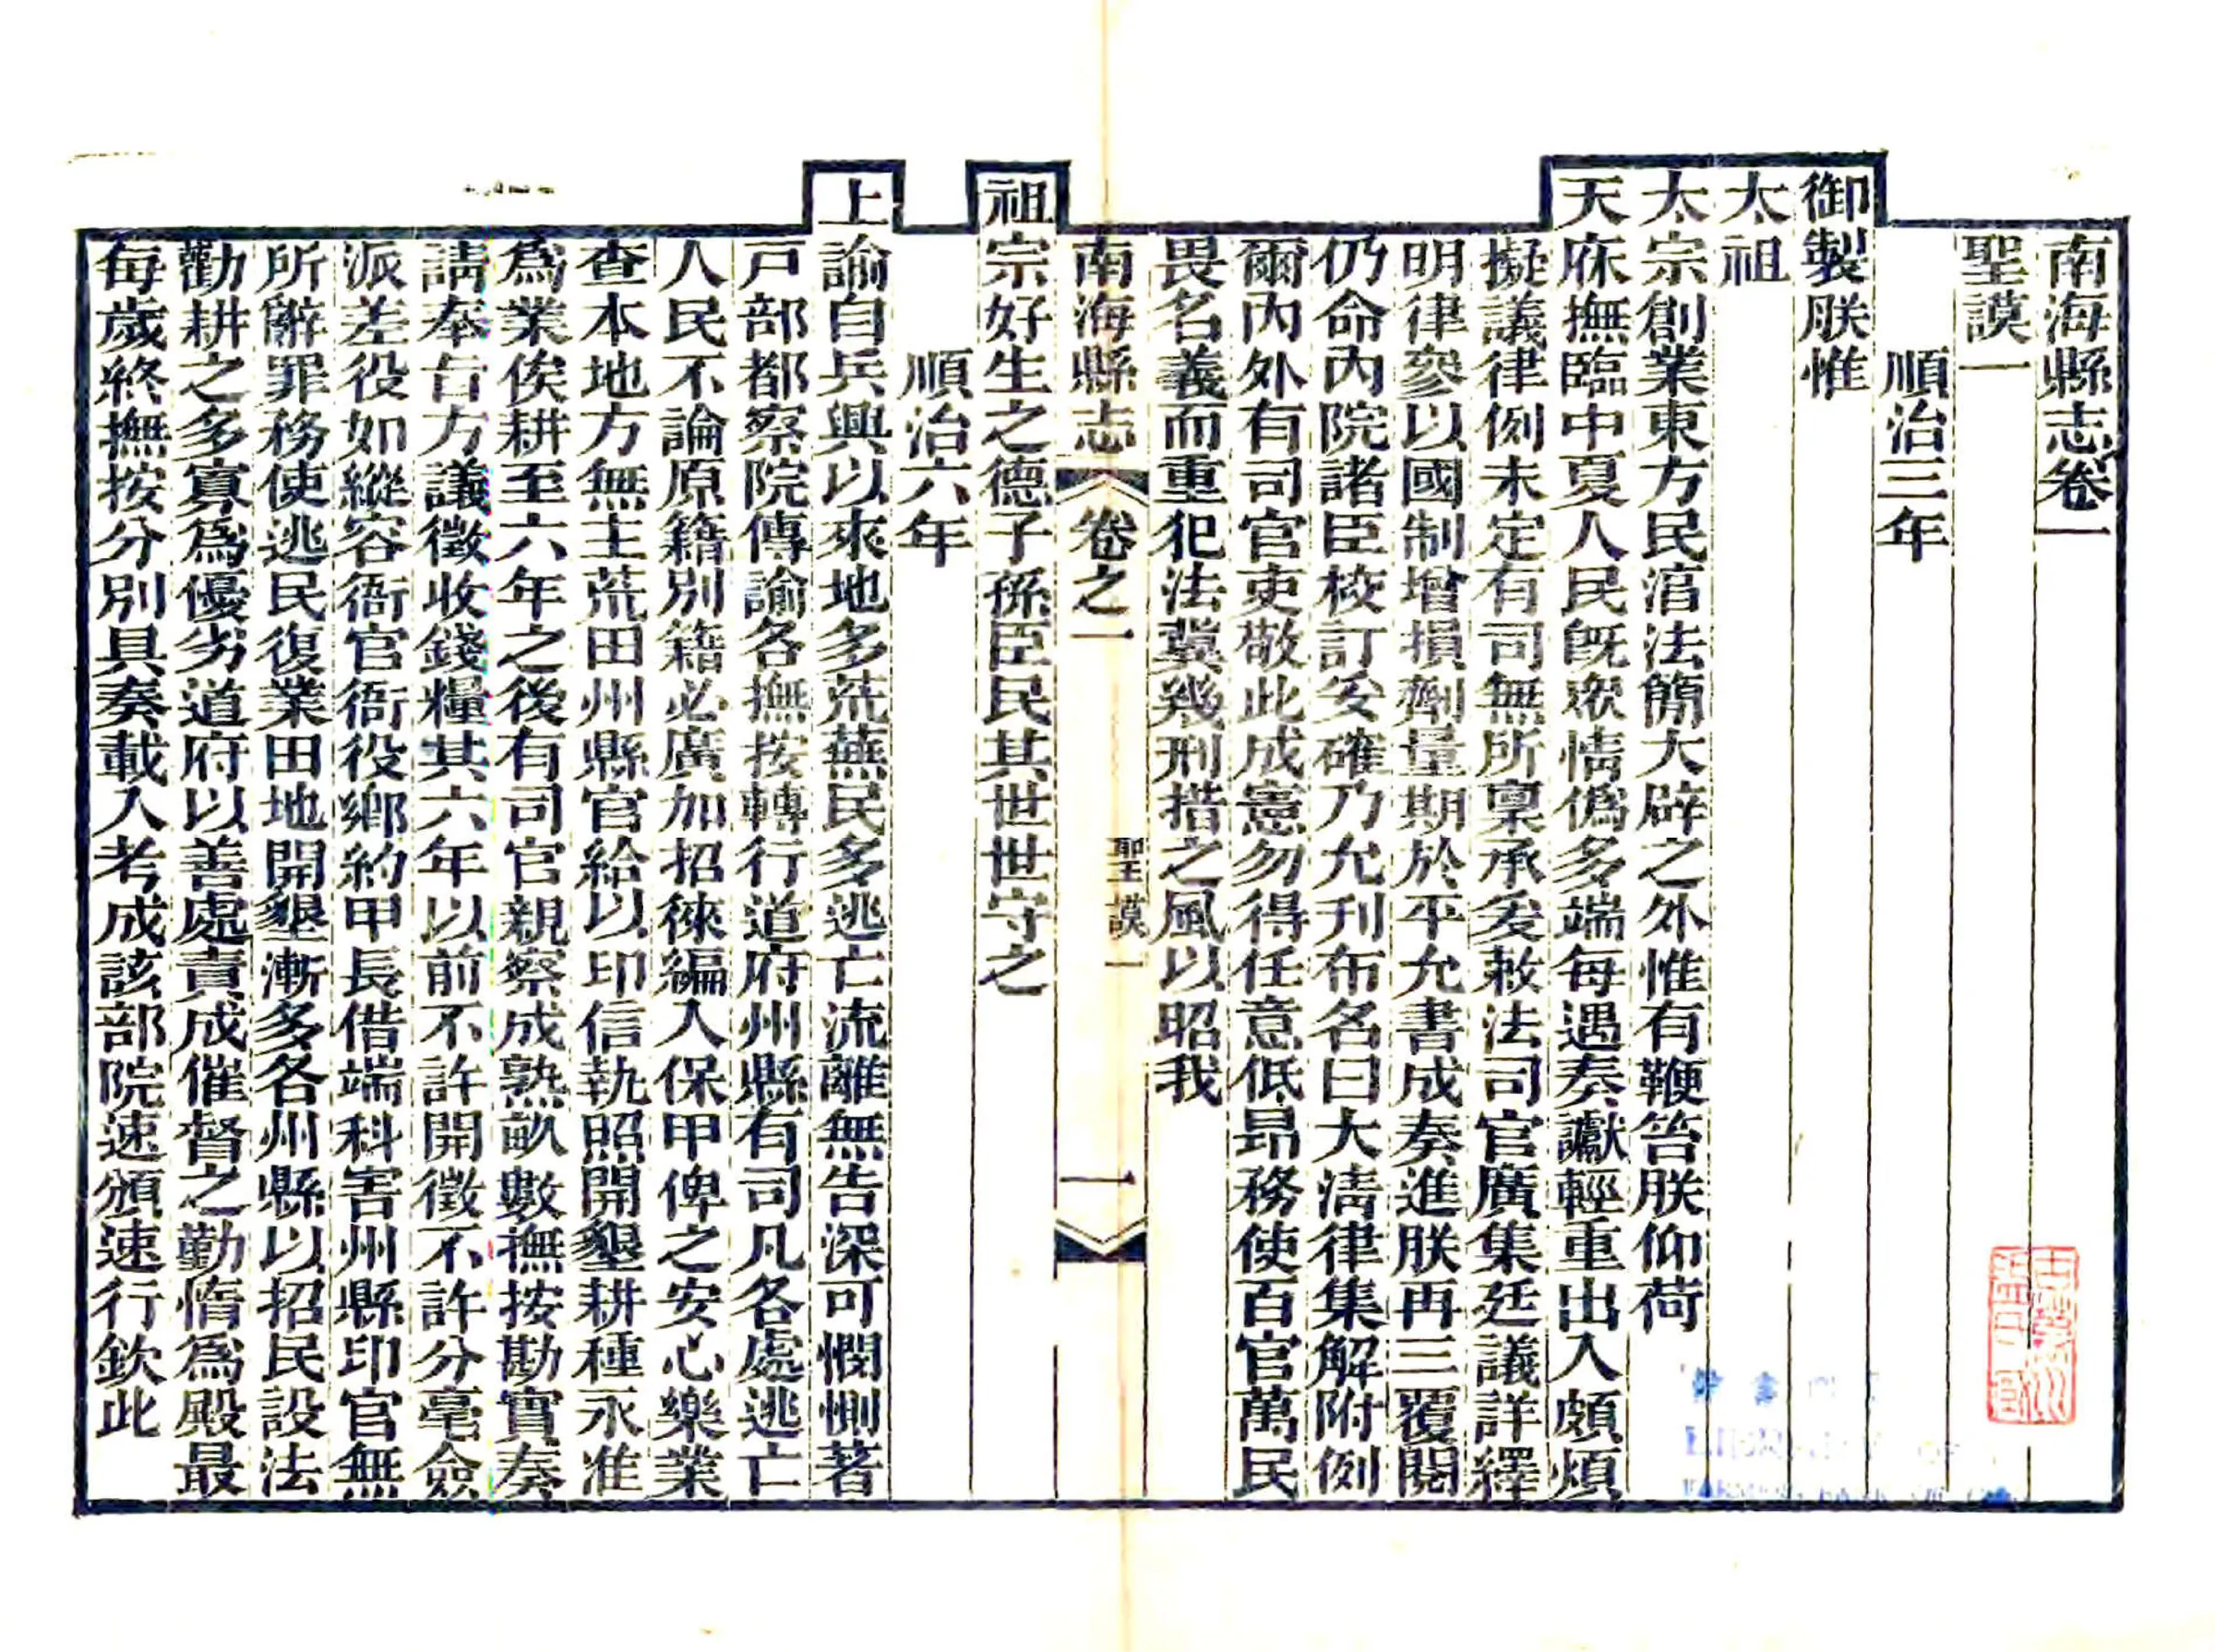 南海縣志卷一
聖謨一
順治三年
御製朕惟
太祖
太宗創業東方民淳法簡大辟之外惟有鞭笞朕仰荷
天庥撫臨中夏人民旣眾情僞多端每遇奏讞輕重出入頗煩
擬議律例未定有司無所稟承爰敕法司官廣集廷議詳繹
明律參以國制增損劑量期於平允書成奏進朕再三覆閱
仍命內院諸臣校訂妥確乃允刊布名曰大淸律集解附例
爾內外有司官吏敬此成憲勿得任意低昂務使百官萬民
畏名義而重犯法冀幾刑措之風以昭我
南海縣志 卷之一 聖謨一 一
祖宗好生之德子孫臣民其世世守之
順治六年
上諭自兵興以來地多荒蕪民多逃亡流離無告深可憫惻著
戸部都察院傳諭各撫按轉行道府州縣有司凡各處逃亡
人民不論原籍別籍必廣加招徠編入保甲俾之安心樂業
查本地方無主荒田州縣官給以印信執照開墾耕種永准
爲業俟耕至六年之後有司官親察成熟畝數撫按勘實奏
請奉旨方議徵收錢糧其六年以前不許開徵不許分毫僉
派差役如縱容衙官衙役鄉約甲長借端科害州縣印官無
所辭罪務使逃民復業田地開墾漸多各州縣以招民設法
勸耕之多寡爲優劣道府以善處責成催督之勤惰爲殿最
每歲終撫按分別具奏載入考成該部院速頒速行欽此